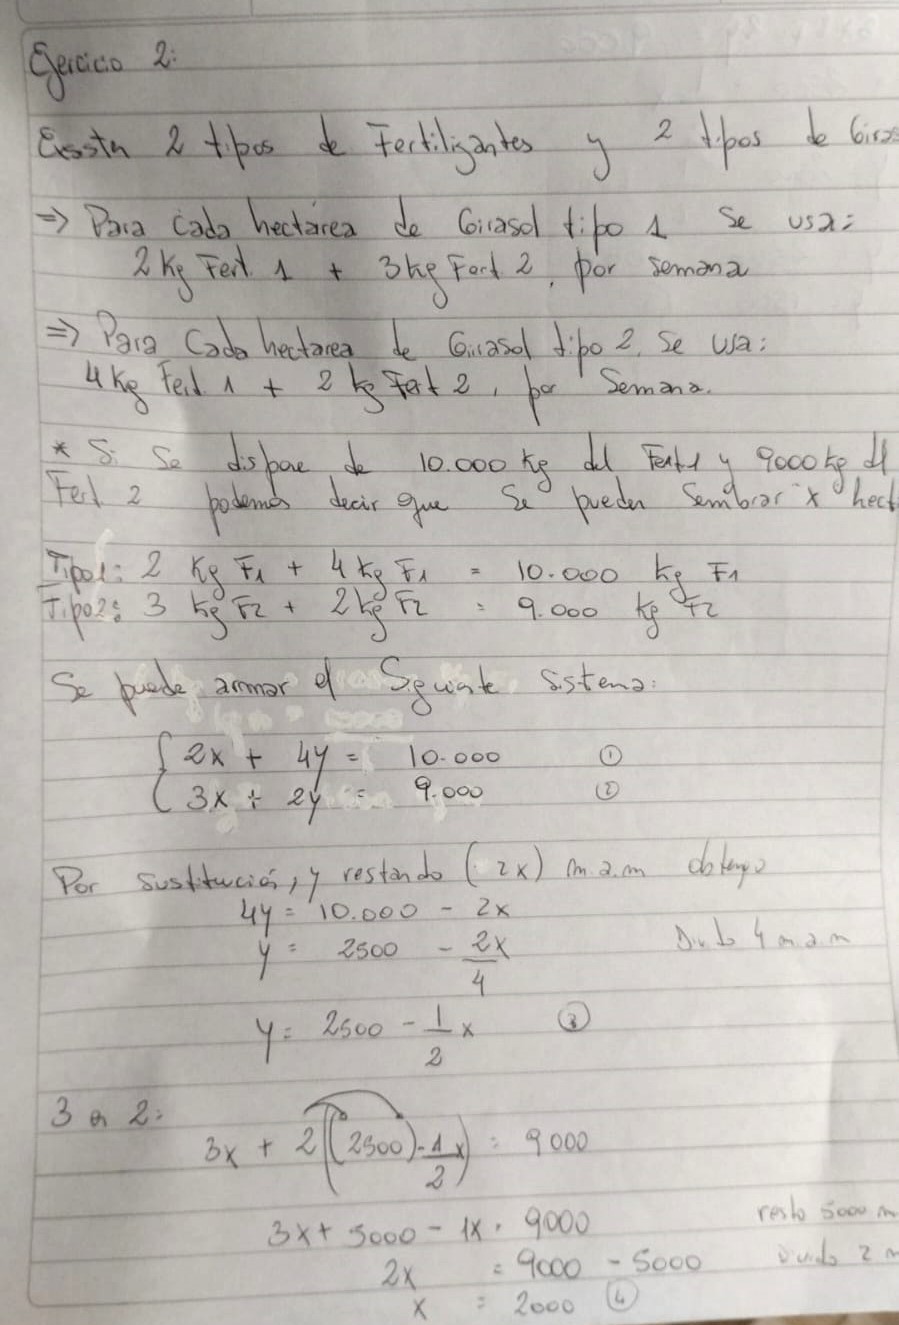 Ejercicio 2:
Existen 2 tipos de Fertilizantes y 2 tipos de Giras
=> Para cada hectárea de Girasol tipo 1 Se usa:
2 Kg Fert. 1 + 3 kg Fert 2, por semana
=> Para Cada hectarea de Girasol tipo 2, Se usa:
4 Kg Fert. 1 + 2 kg Fert 2, por Semana.
* Si Se dispone de 10.000 Kg del Fert 1 y 9000 kg del
Fert 2 podemos decir que Se pueden Sembrar x hect
Tipo1: 2 Kg F1 + 4 kg F1 = 10.000 kg F1
Tipo2: 3 kg F2 + 2 kg F2 = 9.000 kg F2
Se puede armar el Siguiente Sistema:
{ 2x + 4y = 10.000 ①
3x + 2y = 9.000 ②
Por Sustitución, y restando (2x) m.a.m obtengo
4y = 10.000 - 2x
y = 2500 - 2x/4 Divido 4 m.a.m
y = 2500 - 1/2 x ③
3 en 2:
3x + 2((2500) - 1/2 x) = 9000
3x + 5000 - 1x = 9000 resto 5000 m
2x = 9000 - 5000 Divido 2 m
x = 2000 ④